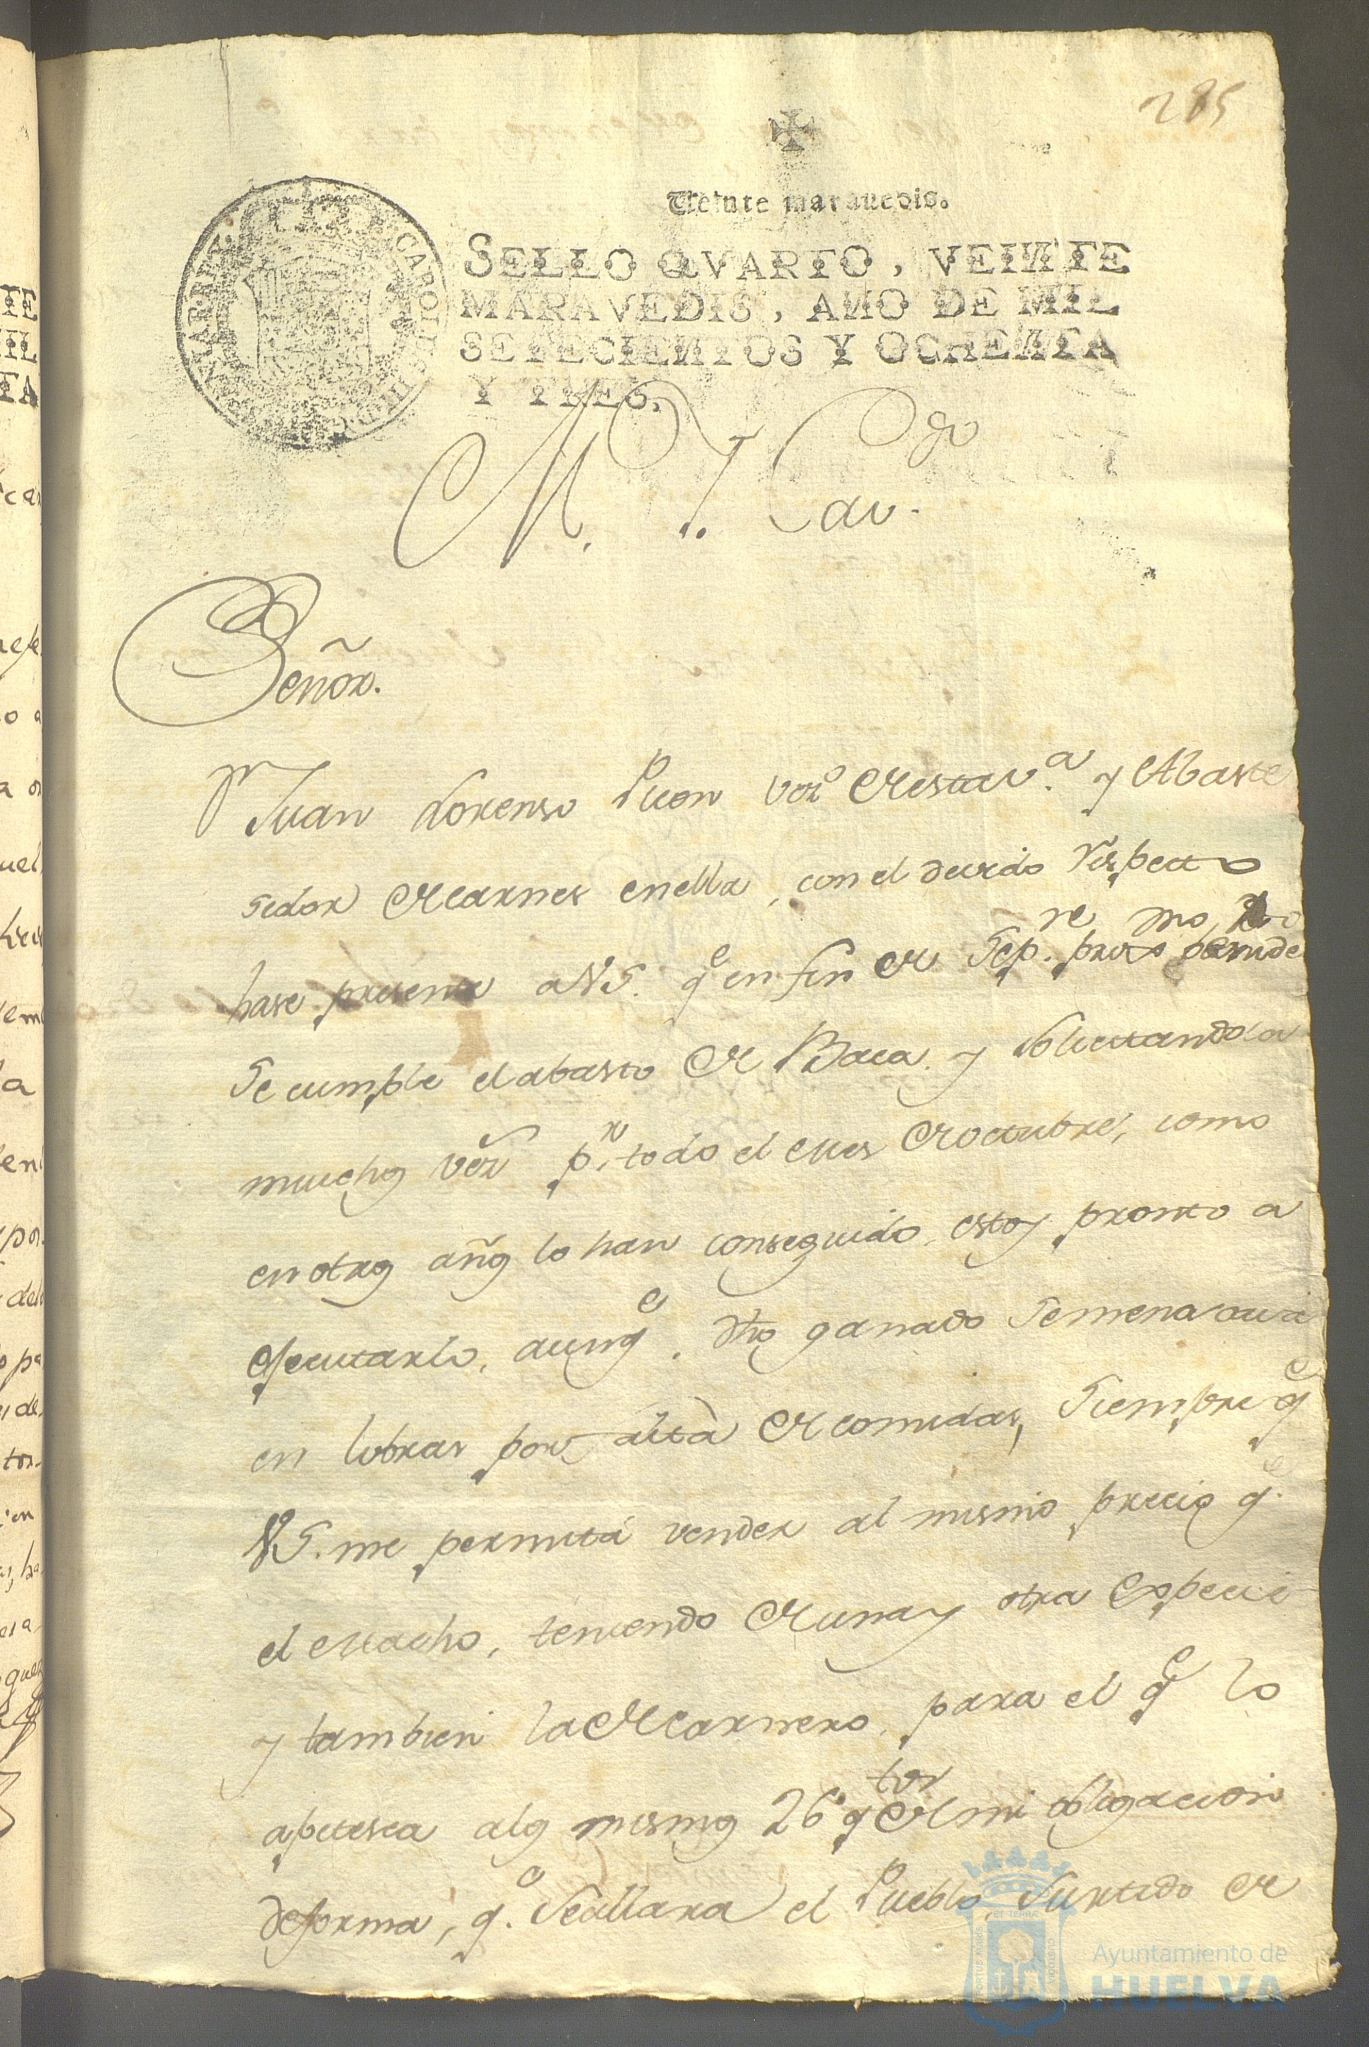 285
Veinte maravedis.
SELLO QVARTO, VEINTE
MARAVEDIS, AÑO DE MIL
SETECIENTOS Y OCHENTA
Y TRES.
M. I. Cav.do
Señor.
Juan Lorenso Puon vezo de esta v.a y Abaste
sedor de carnes en ella, con el devido respecto
hase presente a VS. q.e en fin de Sep.re prox.mo
Se cumple el abasto de Baca y solicitandola
muchos vez.s p.r todo el mes de octubre, como
en otros años lo han conseguido, estoy pronto a
ejecutarlo, aunq.e dho ganado se menoscava
en libras por alta de comidas, siempre q.e
VS. me permita vender al mismo precio q.e
el Macho, teniendo de una y otra especie
y tambien la de carnero, para el q.e lo
apetesca a los mismos 26 q.tos de mi obligacion
de forma, q.e se allara el Pueblo, surtido de
Ayuntamiento de
HUELVA